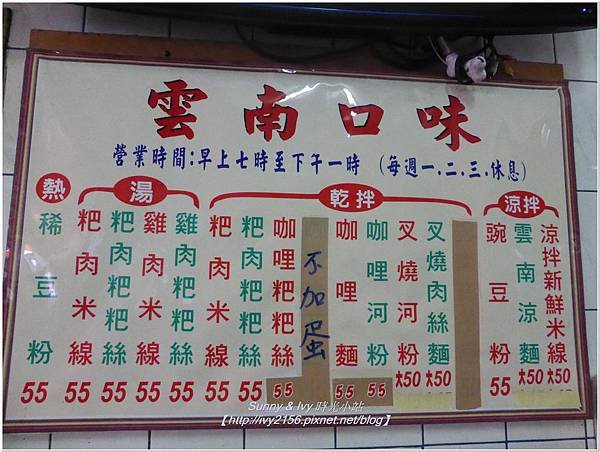 雲南口味
營業時間:早上七時至下午一時 (每週一.二.三.休息)
熱
稀豆粉 55
湯
粑肉米線 55
粑肉粑粑絲 55
雞肉米線 55
雞肉粑粑絲 55
乾拌
粑肉米線 55
粑肉粑粑絲 55
咖哩粑粑絲 55
不加蛋
咖哩麵 55
咖哩河粉 55
叉燒河粉 大50
叉燒肉絲麵 大50
涼拌
豌豆粉 55
雲南涼麵 大50
涼拌新鮮米線 大50
Sunny & Ivy 時光小站
【http://ivy2156.pixnet.net/blog】